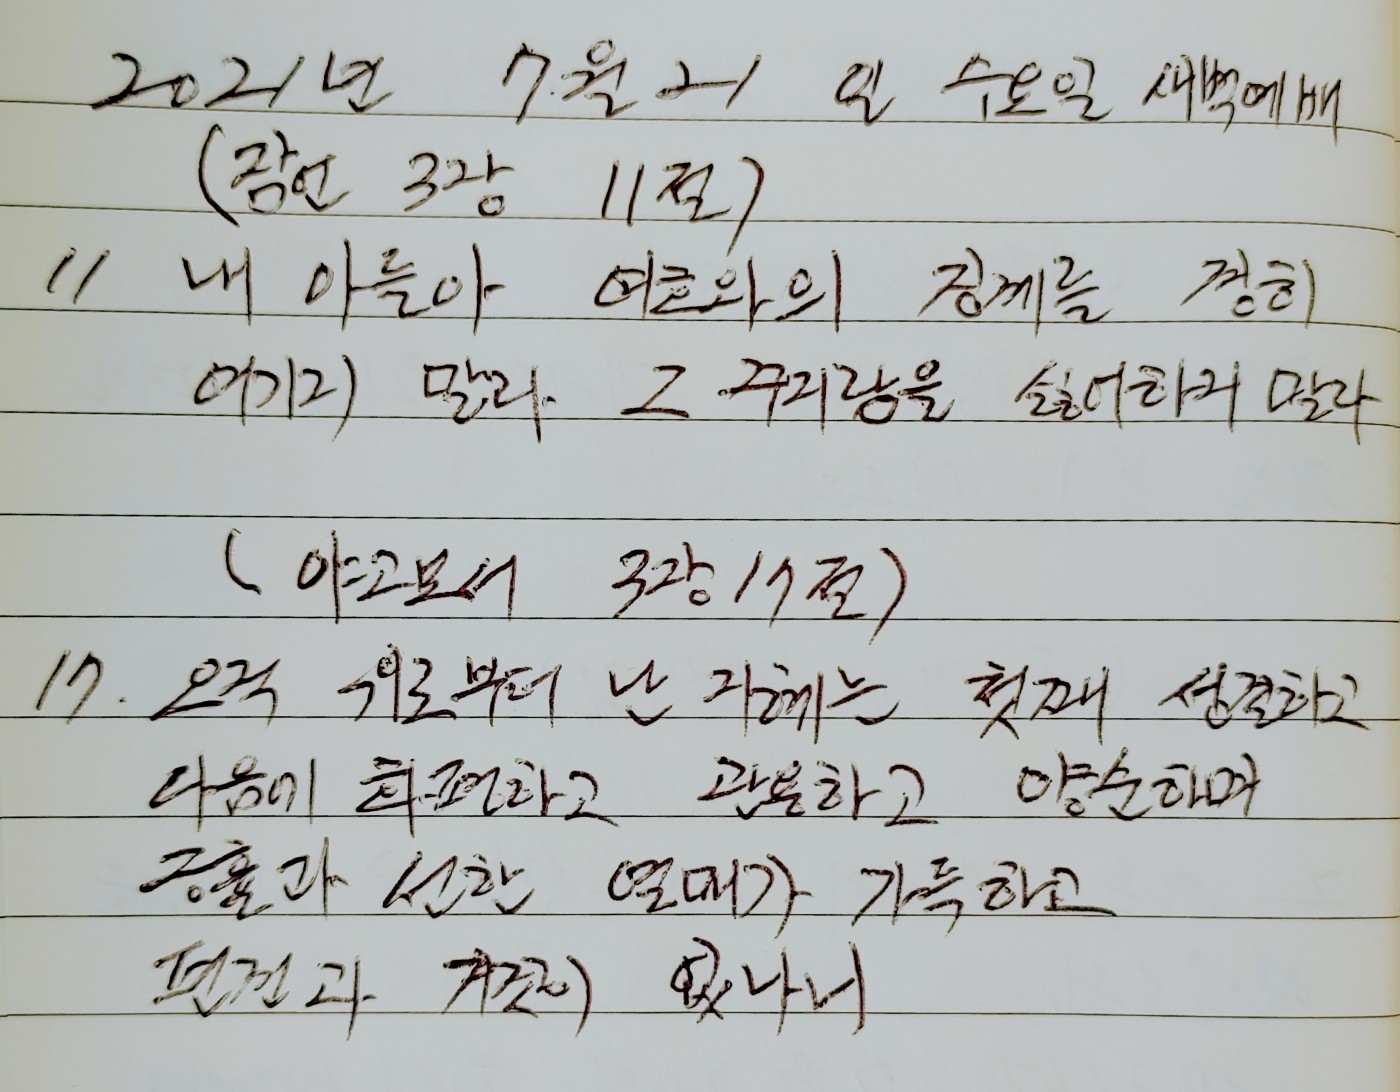 2021년 7월 21일 수요일 새벽예배
(잠언 3장 11절)
11 내 아들아 여호와의 징계를 경히
여기지 말라. 그 꾸지람을 싫어하지 말라
(야고보서 3장 17절)
17. 오직 위로부터 난 지혜는 첫째 성결하고
다음에 화평하고 관용하고 양순하며
긍휼과 선한 열매가 가득하고
편견과 거짓이 없나니